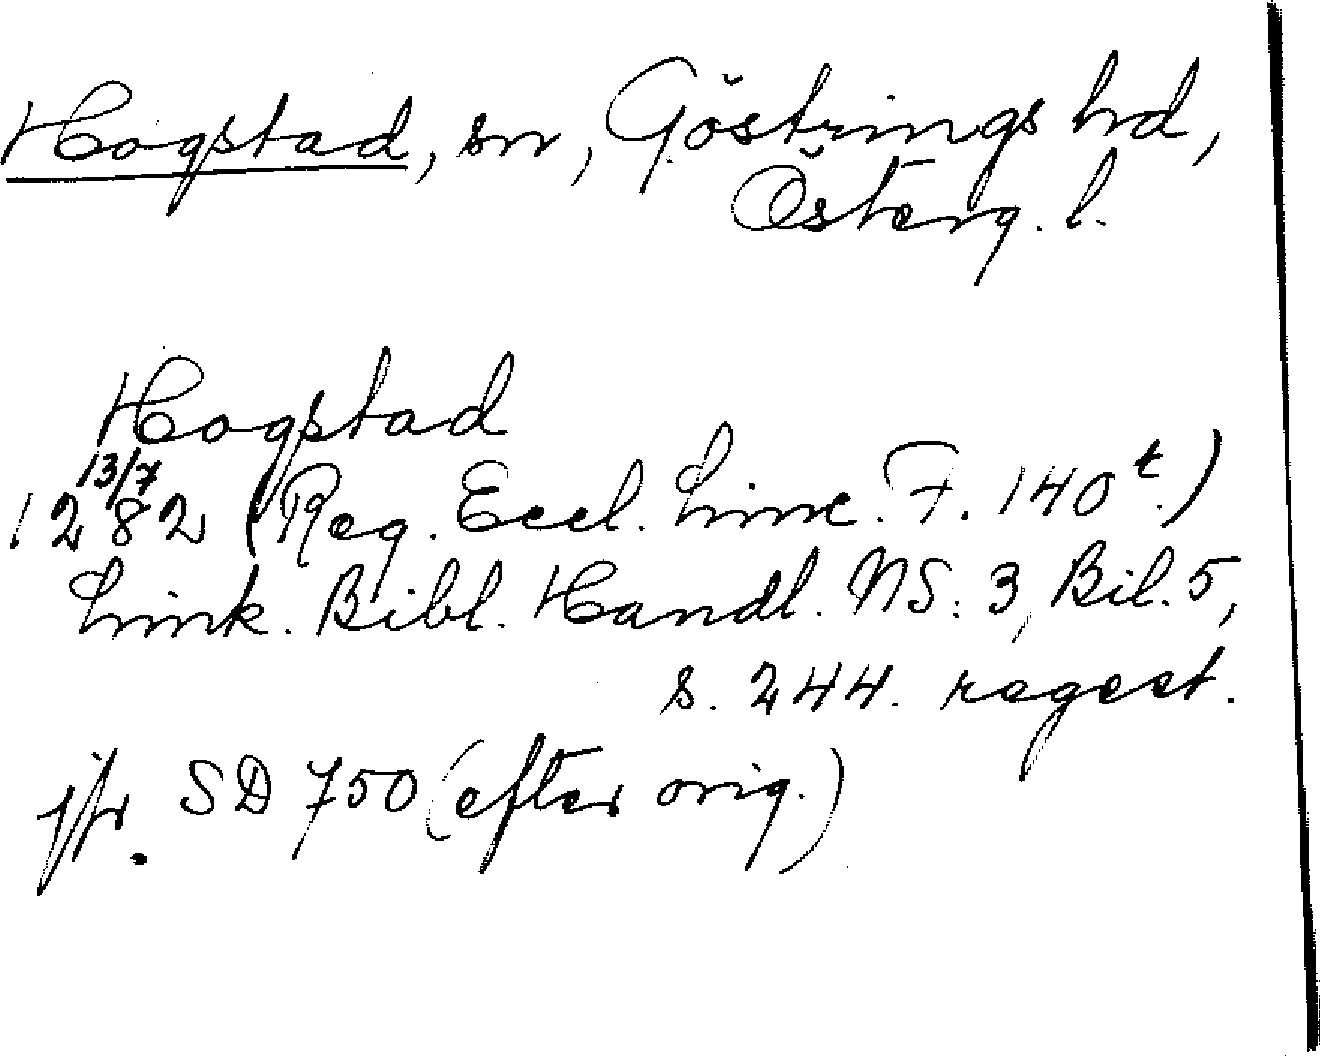 Hogstad, sn, Göstrings hd,
Österg. l.
Hogstad
13/7
1282 (Reg. Eccl. Linc. F. 140t.)
Link. Bibl. Handl. NS. 3, Bil. 5,
s. 244. regest.
jfr. SD 750 (efter orig.)